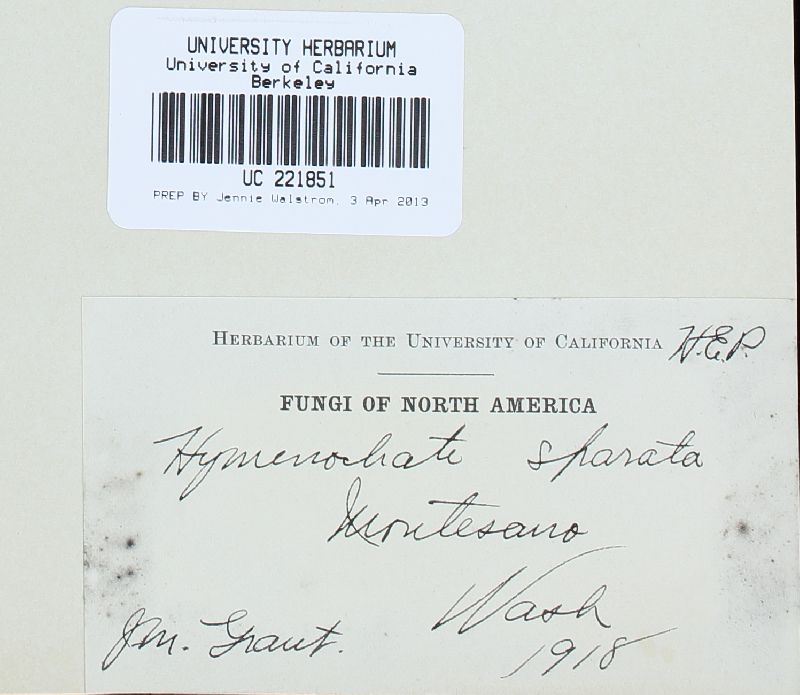 UNIVERSITY HERBARIUM
University of California
Berkeley
UC 221851
PREP BY Jennie Walstrom, 3 Apr 2013
HERBARIUM OF THE UNIVERSITY OF CALIFORNIA H.E.P.
FUNGI OF NORTH AMERICA
Hymenochate sparata
Montesano
Wash
J.M. Grant. 1918